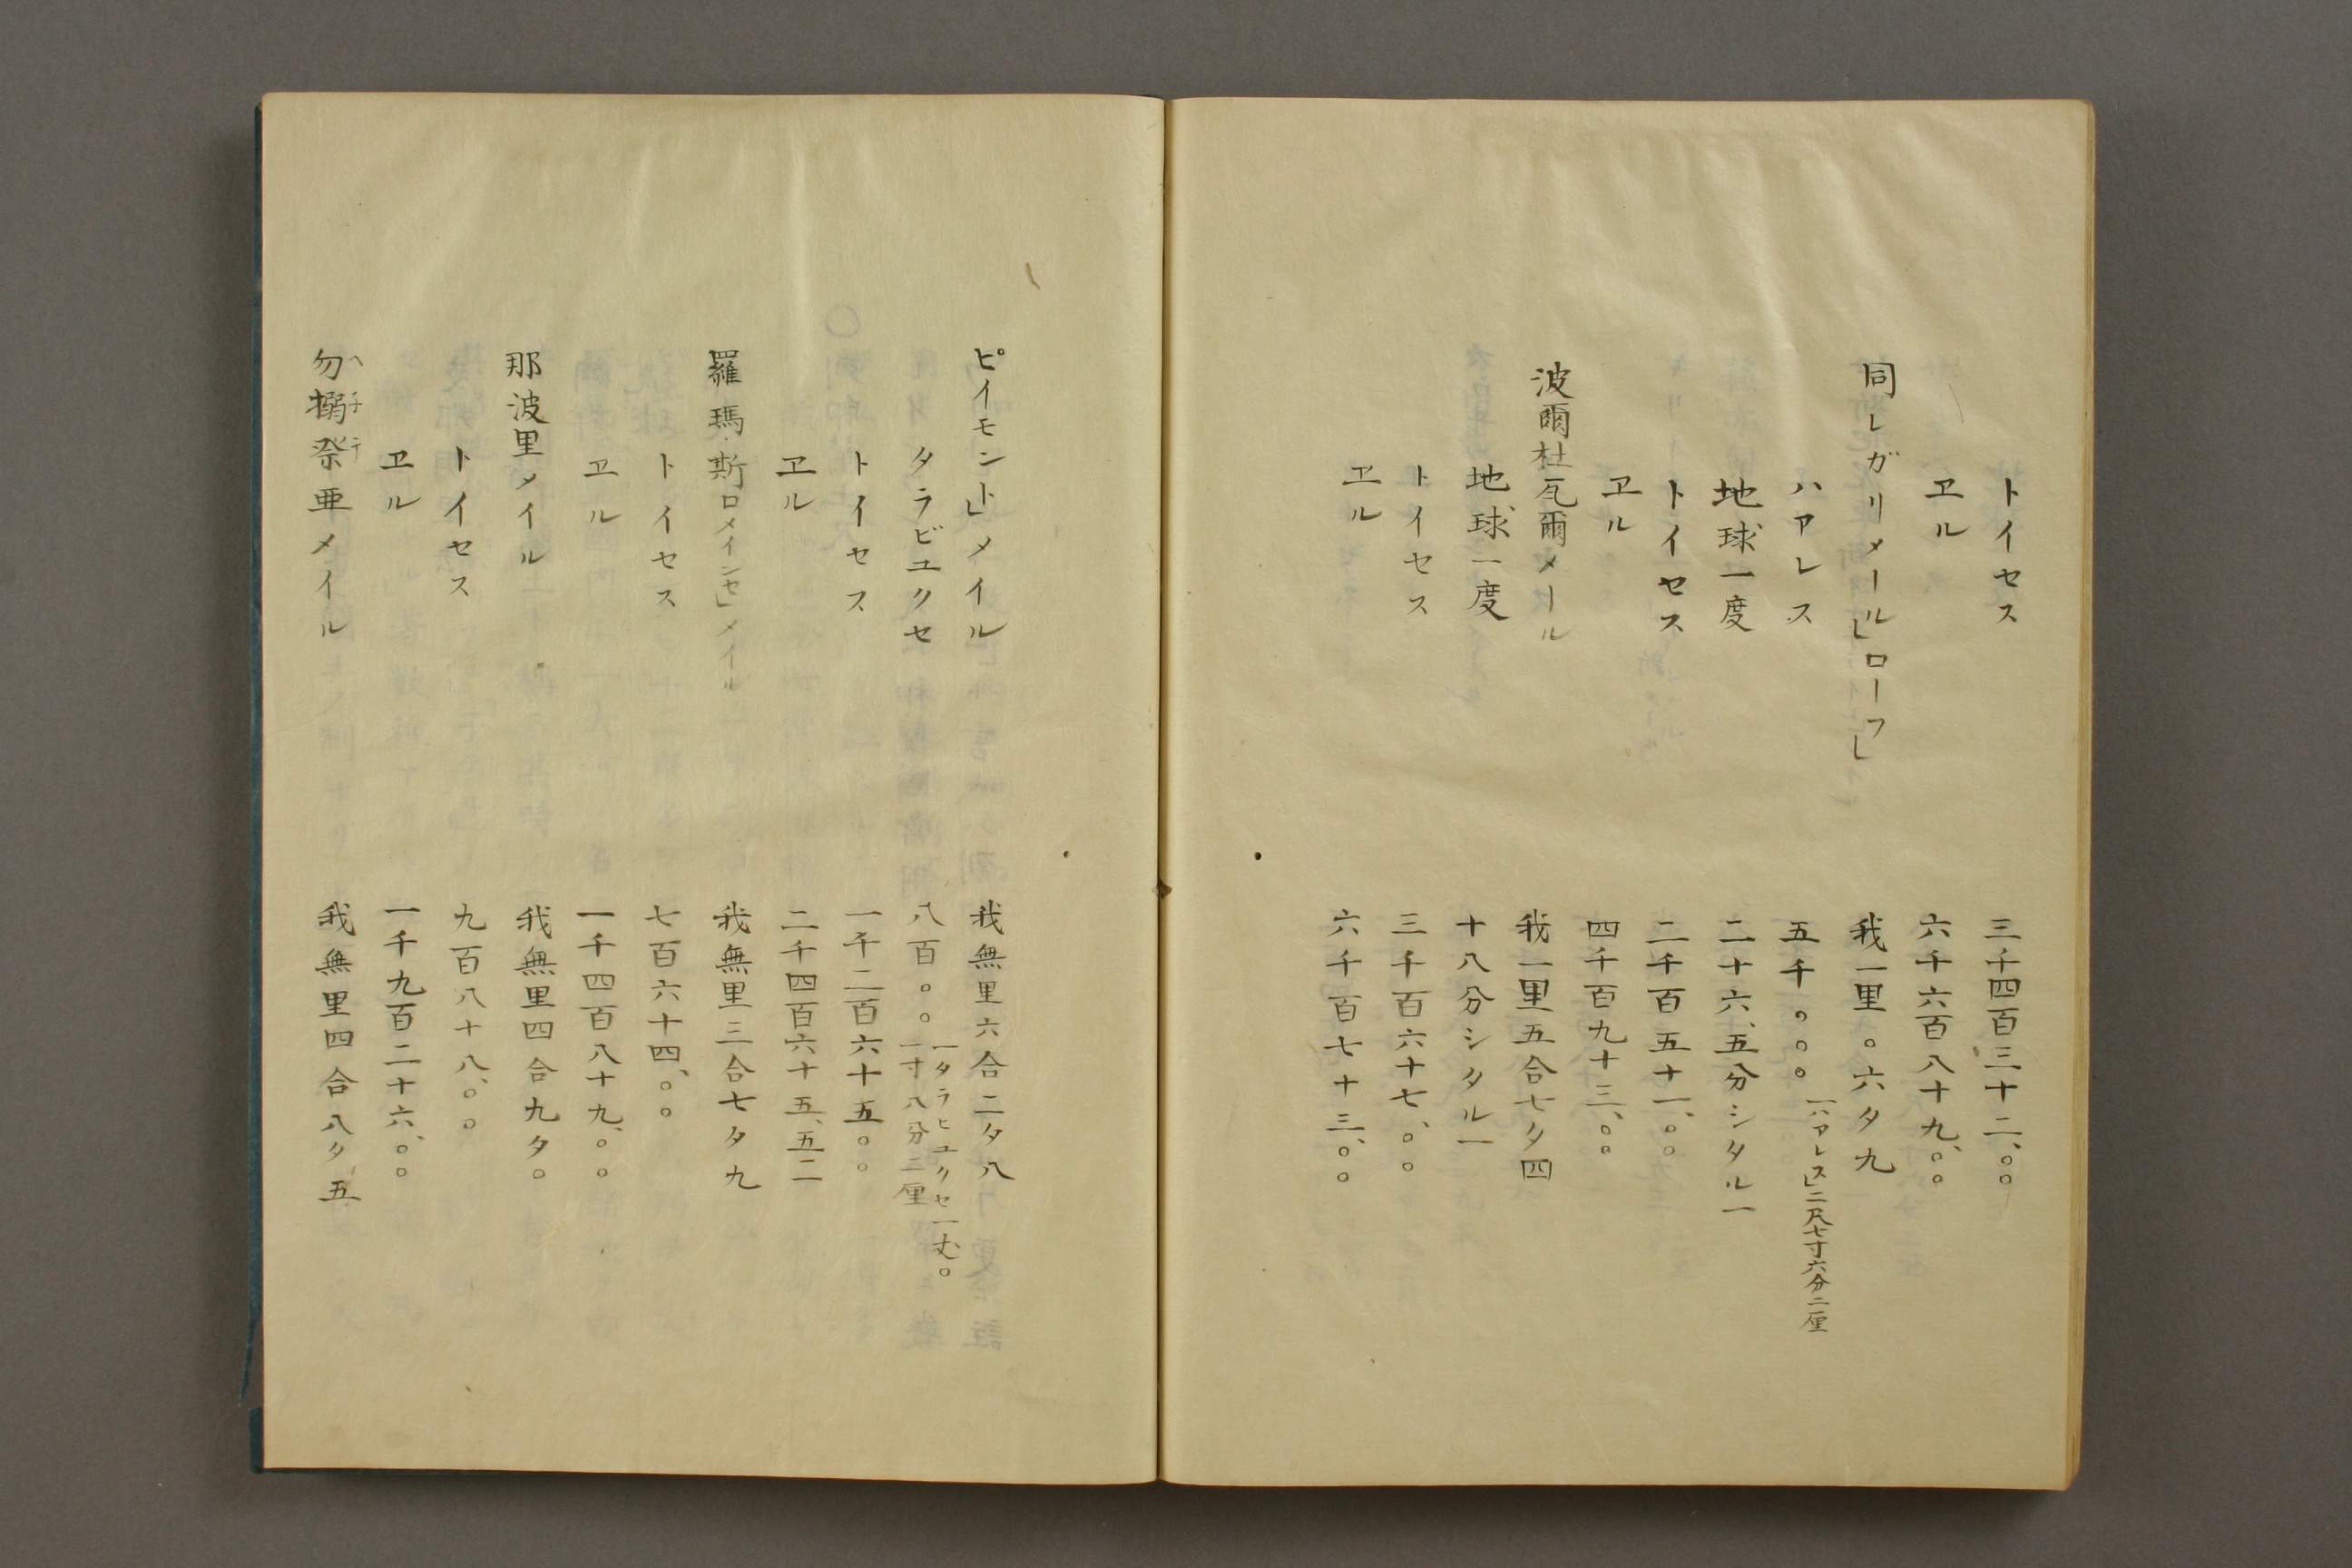 トイセス　三千四百三十二、〇〇
ヱル　六千六百八十九、〇〇
同レガリメール」ローフ」　我一里〇六夕九
ハアレス　五千〇〇〇　一ハアレス」二尺七寸六分二厘
地球一度　二十六、五分シタル一
トイセス　二千百五十一、〇〇
ヱル　四千百九十三、〇〇
波爾杜瓦爾メール　我一里五合七夕四
地球一度　十八分シタル一
トイセス　三千百六十七、〇〇
ヱル　六千百七十三、〇〇
ピイモント」メイル　我無里六合二夕八
タラビユクセ　八百〇〇　一タラヒユクセ一丈〇一寸八分二厘
トイセス　一千二百六十五〇〇
ヱル　二千四百六十五、五二
羅瑪斯ロメインセ」メイル　我無里三合七夕九
トイセス　七百六十四、〇〇
ヱル　一千四百八十九、〇〇
那波里メイル　我無里四合九夕〇
トイセス　九百八十八、〇〇
ヱル　一千九百二十六、〇〇
勿搦祭亜メイル　我無里四合八夕五
ヘ子テ